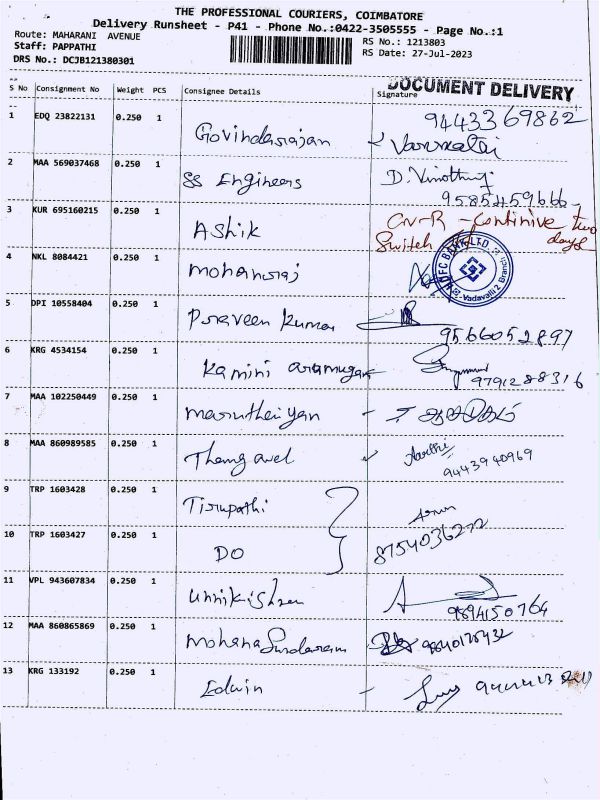 THE PROFESSIONAL COURIERS, COIMBATORE
Delivery Runsheet - P41 - Phone No.:0422-3505555 - Page No.:1
Route: MAHARANI AVENUE
RS No.: 1213803
Staff: PAPPATHI
RS Date: 27-Jul-2023
DRS No.: DCJB121380301
DOCUMENT DELIVERY
S No Consignment No Weight PCS Consignee Details Signature
1 EDQ 23822131 0.250 1 Govindarajan 9443369862
2 MAA 569037468 0.250 1 SS Engineers D. Vinothraj
9585459666
3 KUR 695160215 0.250 1 Ashik CNR - Continive two
Switch days
4 NKL 8084421 0.250 1 Mohanraj
BANK LTD
Vadavalli 2 Branch
5 DPI 10558404 0.250 1 Praveen Kumar
9566052897
6 KRG 4534154 0.250 1 Kamini arumugam
9791288316
7 MAA 102250449 0.250 1 Marutheiyan
8 MAA 860989585 0.250 1 Thangavel Aarthi
9443940969
9 TRP 1603428 0.250 1 Tirupathi Arun
10 TRP 1603427 0.250 1 DO 8754036222
11 VPL 943607834 0.250 1 Unnikishan
9894150764
12 MAA 860865869 0.250 1 Mohana Sundaram
13 KRG 133192 0.250 1 Edwin